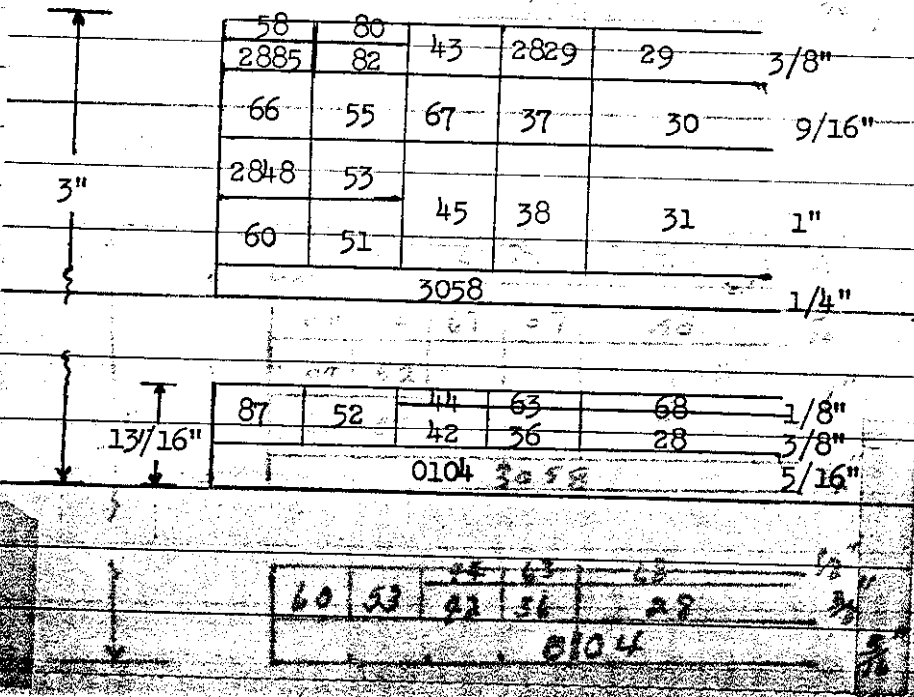 58 80
43 2829 29 3/8"
2885 82
66 55 67 37 30 9/16"
2848 53
3"
45 38 31 1"
60 51
3058 1/4"
67 37
87 52 44 63 68 1/8"
13/16" 42 36 28 3/8"
0104 3058 5/16"
44 63 68 1/8"
60 53 42 36 28 3/8"
0104 5/16